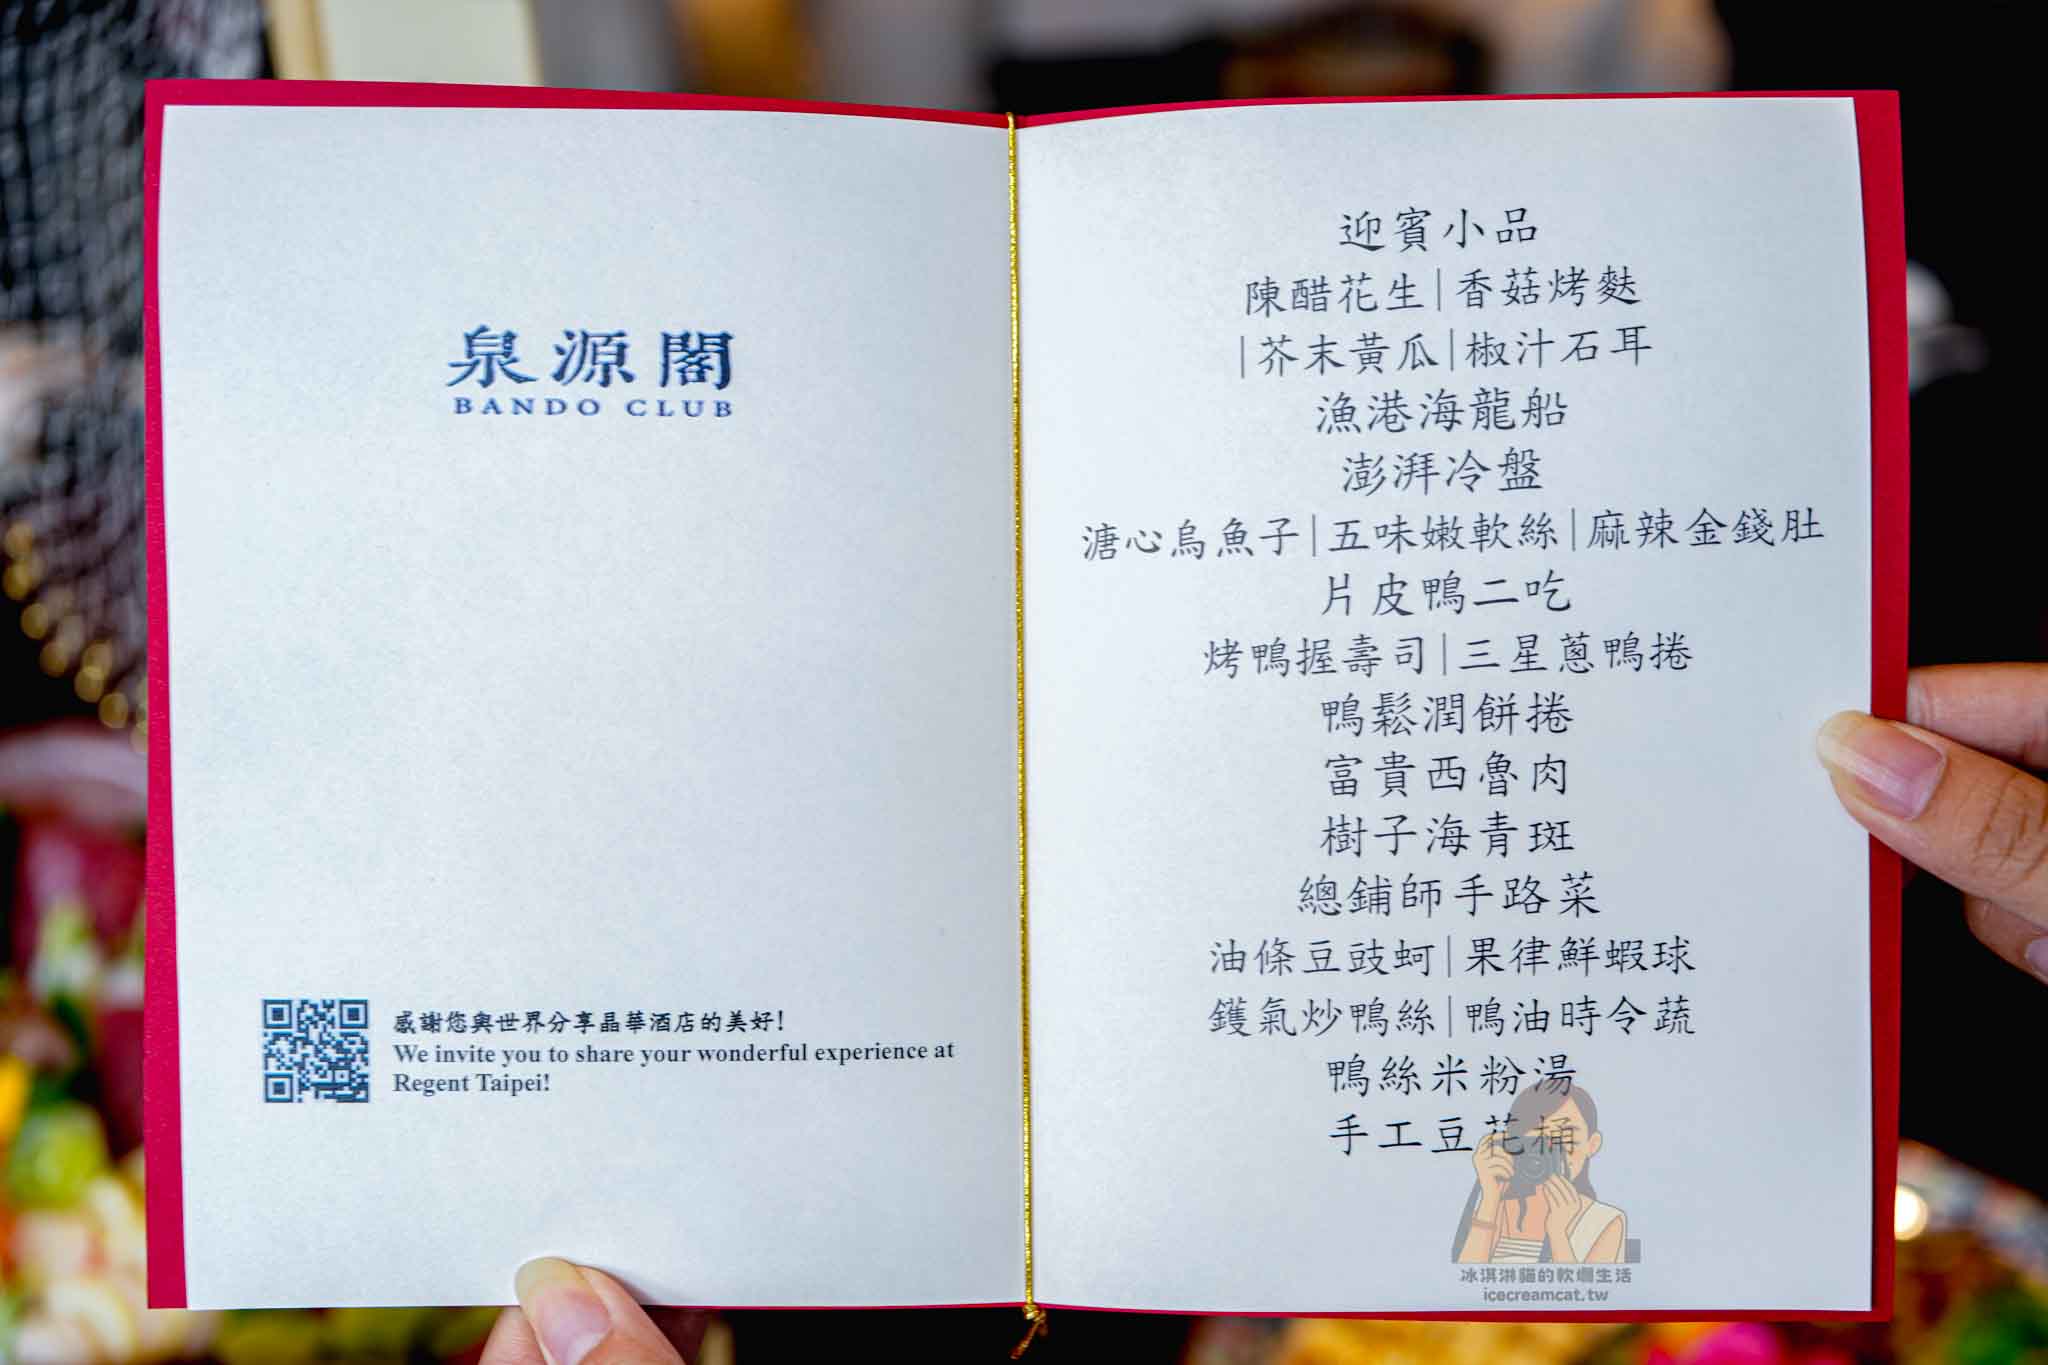 泉源閣
BANDO CLUB
感謝您與世界分享晶華酒店的美好!
We invite you to share your wonderful experience at
Regent Taipei!
迎賓小品
陳醋花生|香菇烤麩
|芥末黃瓜|椒汁石耳
漁港海龍船
澎湃冷盤
溏心烏魚子|五味嫩軟絲|麻辣金錢肚
片皮鴨二吃
烤鴨握壽司|三星蔥鴨捲
鴨鬆潤餅捲
富貴西魯肉
樹子海青斑
總鋪師手路菜
油條豆豉蚵|果律鮮蝦球
鑊氣炒鴨絲|鴨油時令蔬
鴨絲米粉湯
手工豆花桶
冰淇淋貓的軟爛生活
icecreamcat.tw